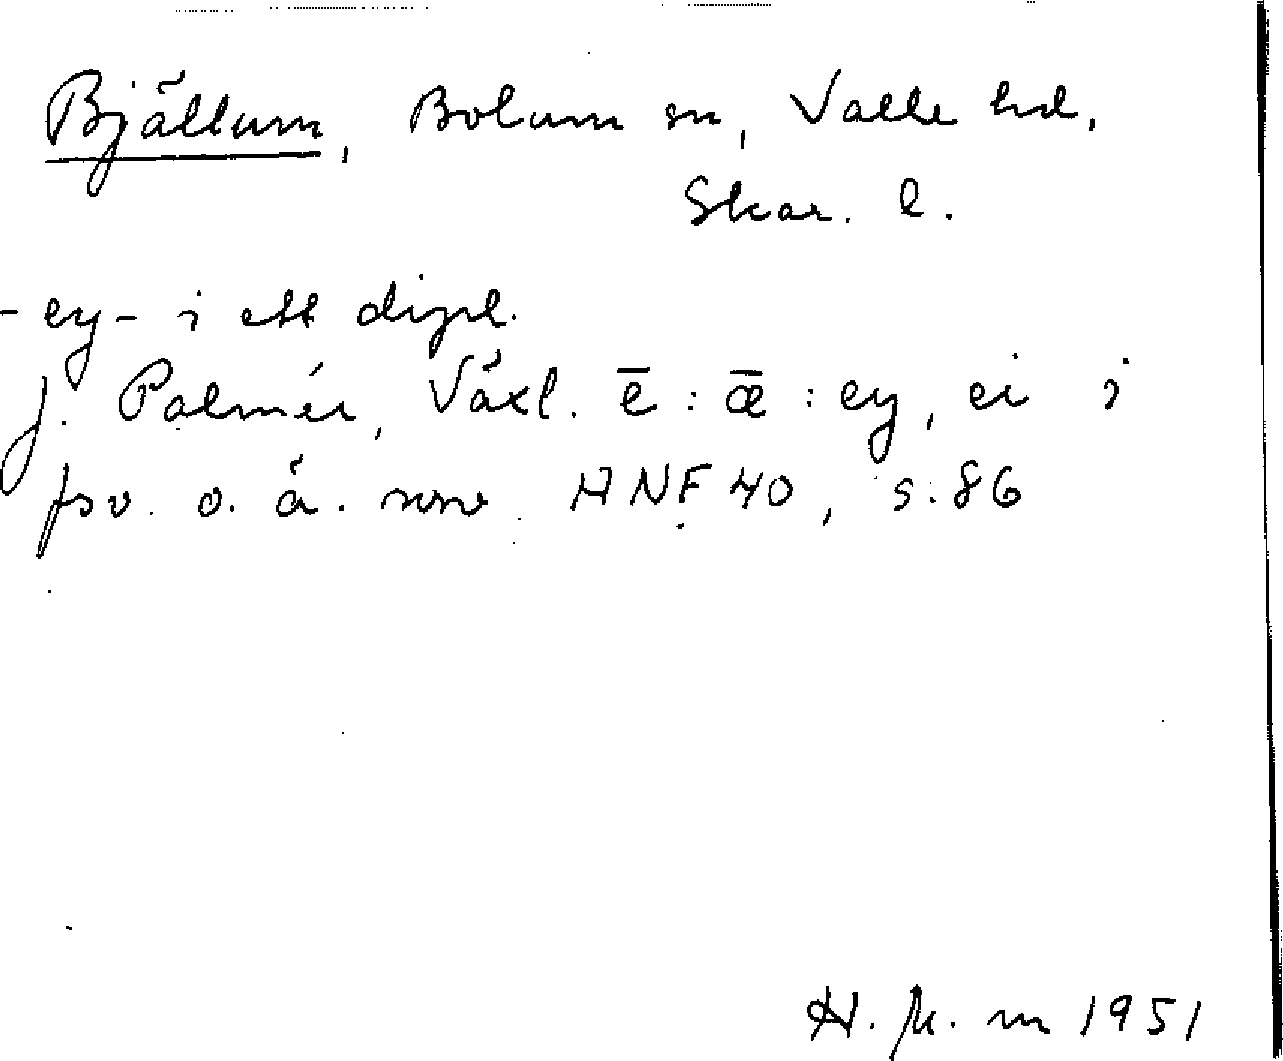 Bjällum, Bolum sn, Valle hd,
Skar. l.
-ey- i ett dipl.
j. Palmér, Växl. ē : ǣ : ey, ei i
fsv. o. ä. nsv. ANF 40, s. 86
1951